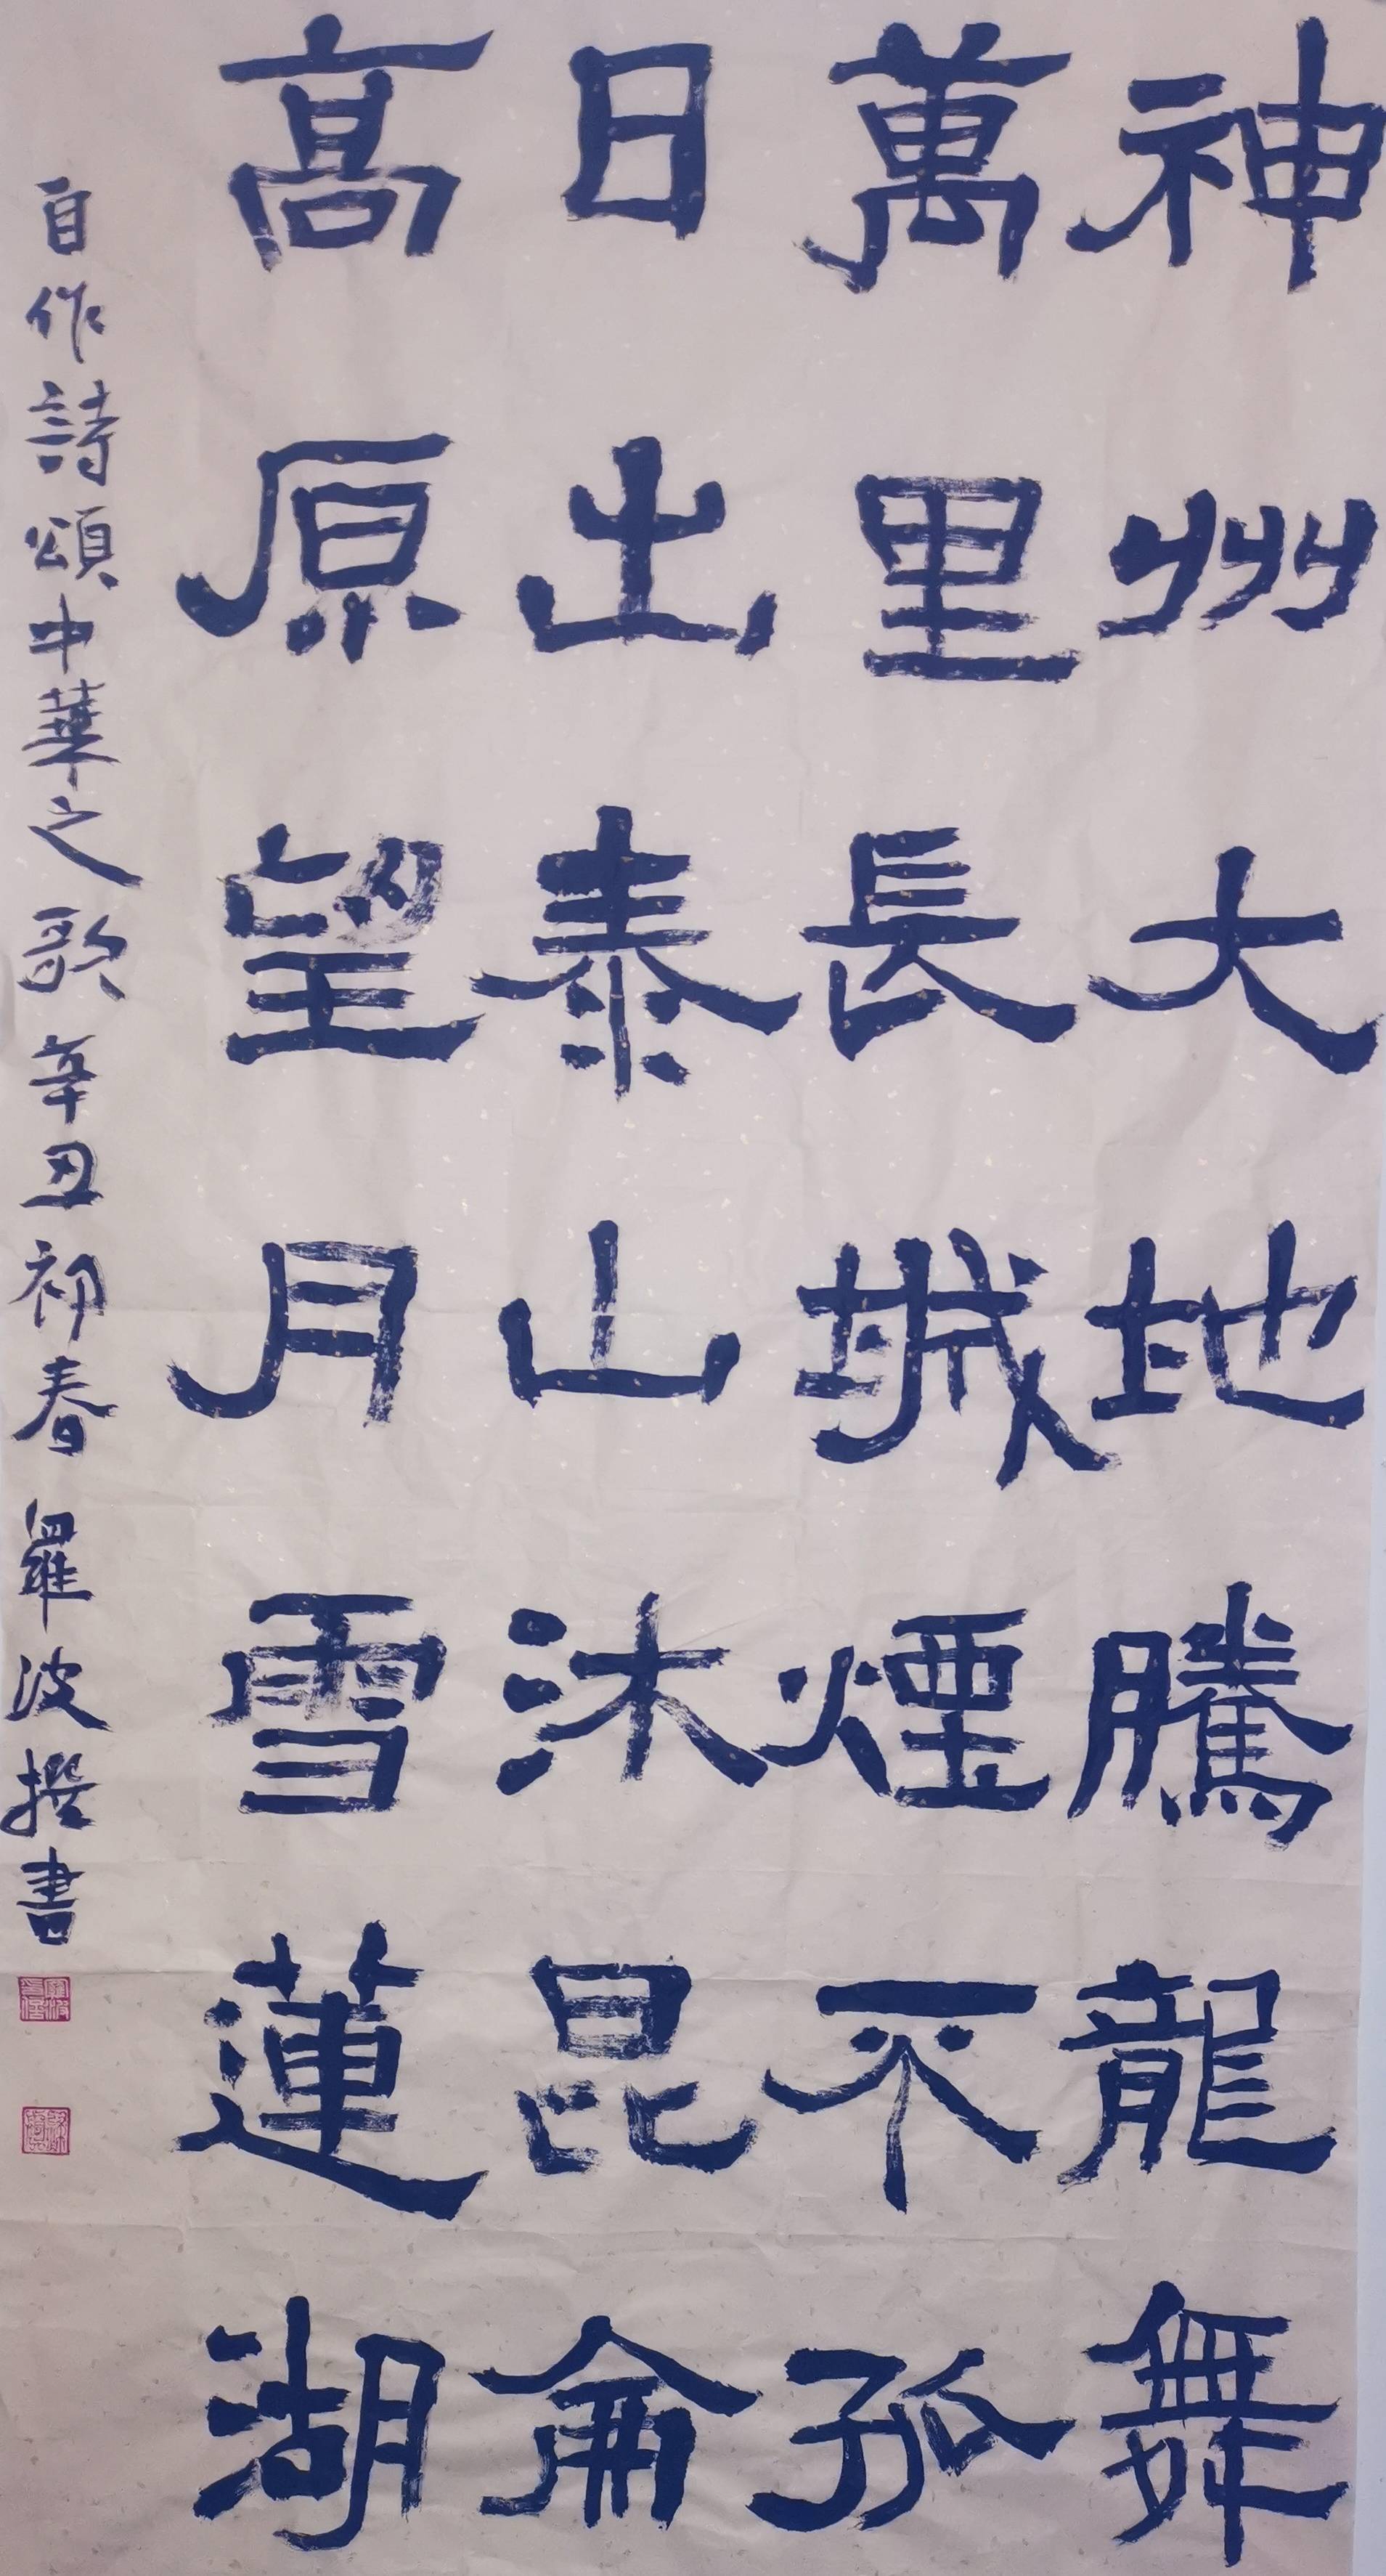 神州大地騰龍舞
萬里長城煙不孤
日出泰山沐昆侖
高原望月雪蓮湖
自作詩頌中華之歌辛丑初春羅波撰書